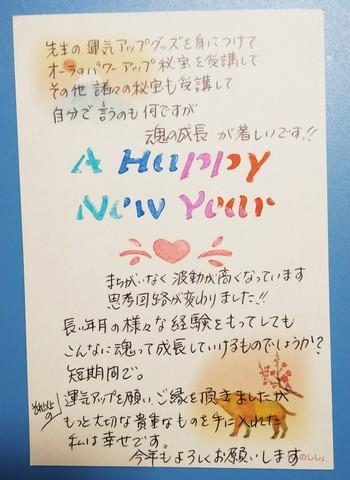 先生の運気アップグッズを身につけて
オーラのパワーアップ秘宝を受講して
その他 諸々の秘宝も受講して
自分で言うのも何ですが
魂の成長 が著しいです!!
A Happy
New Year
まちがいなく 波動が高くなっています
思考回路が変わりました!!
長い年月の様々な経験をもってしても
こんなに魂って成長していけるものでしょうか?
短期間で。
運気アップを願い、ご縁を頂きましたが
もっと大切な貴重なものを手に入れた
私は幸せです。
今年もよろしくお願いします